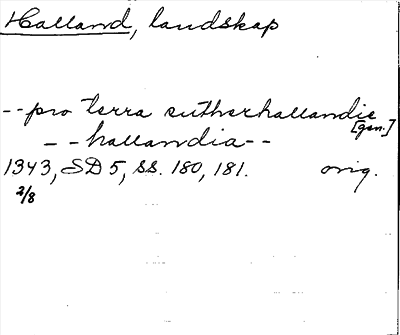 Halland, landskap
--pro terra sutherhallandie
[gen.]
--hallandia--
1343, SD 5, ss. 180, 181. orig.
2/8